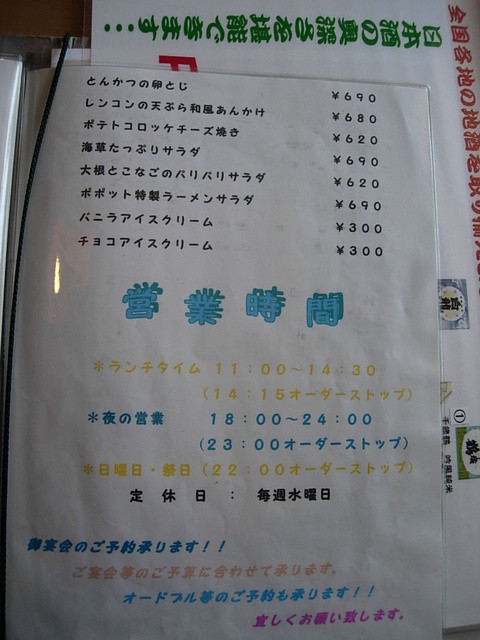 日本酒の奥深さを堪能できます・・・
とんかつの卵とじ ￥６９０
レンコンの天ぷら和風あんかけ ￥６８０
ポテトコロッケチーズ焼き ￥６２０
海草たっぷりサラダ ￥６９０
大根とこなごのパリパリサラダ ￥６２０
ポポット特製ラーメンサラダ ￥６９０
バニラアイスクリーム ￥３００
チョコアイスクリーム ￥３００
営業時間
＊ランチタイム １１：００～１４：３０
（１４：１５オーダーストップ）
＊夜の営業 １８：００～２４：００
（２３：００オーダーストップ）
＊日曜日・祭日（２２：００オーダーストップ）
定 休 日 ： 毎週水曜日
御宴会のご予約承ります！！
ご宴会等のご予算に合わせて承ります。
オードブル等のご予約も承ります！！
宜しくお願い致します。
全国各地の地酒を取り揃え
①
千歳鶴 吟風純米